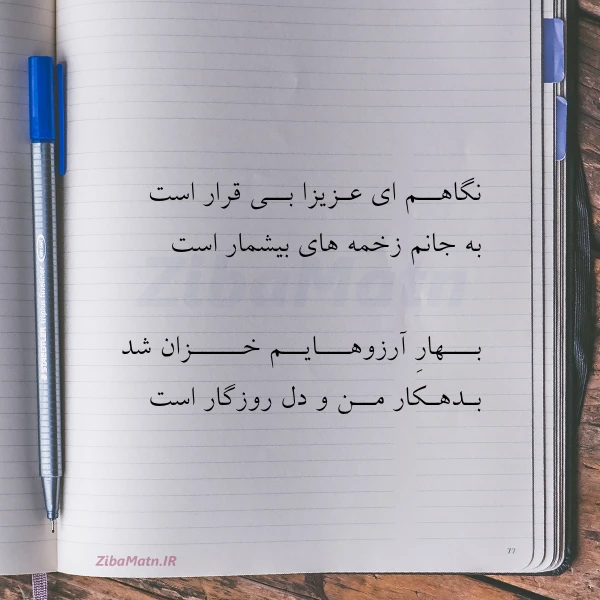 نگاهم ای عزیزا بی قرار است
به جانم زخمه های بیشمار است
بهارِ آرزوهایم خزان شد
بدهکار من و دل روزگار است
ZibaMatn
ZibaMatn.IR
77